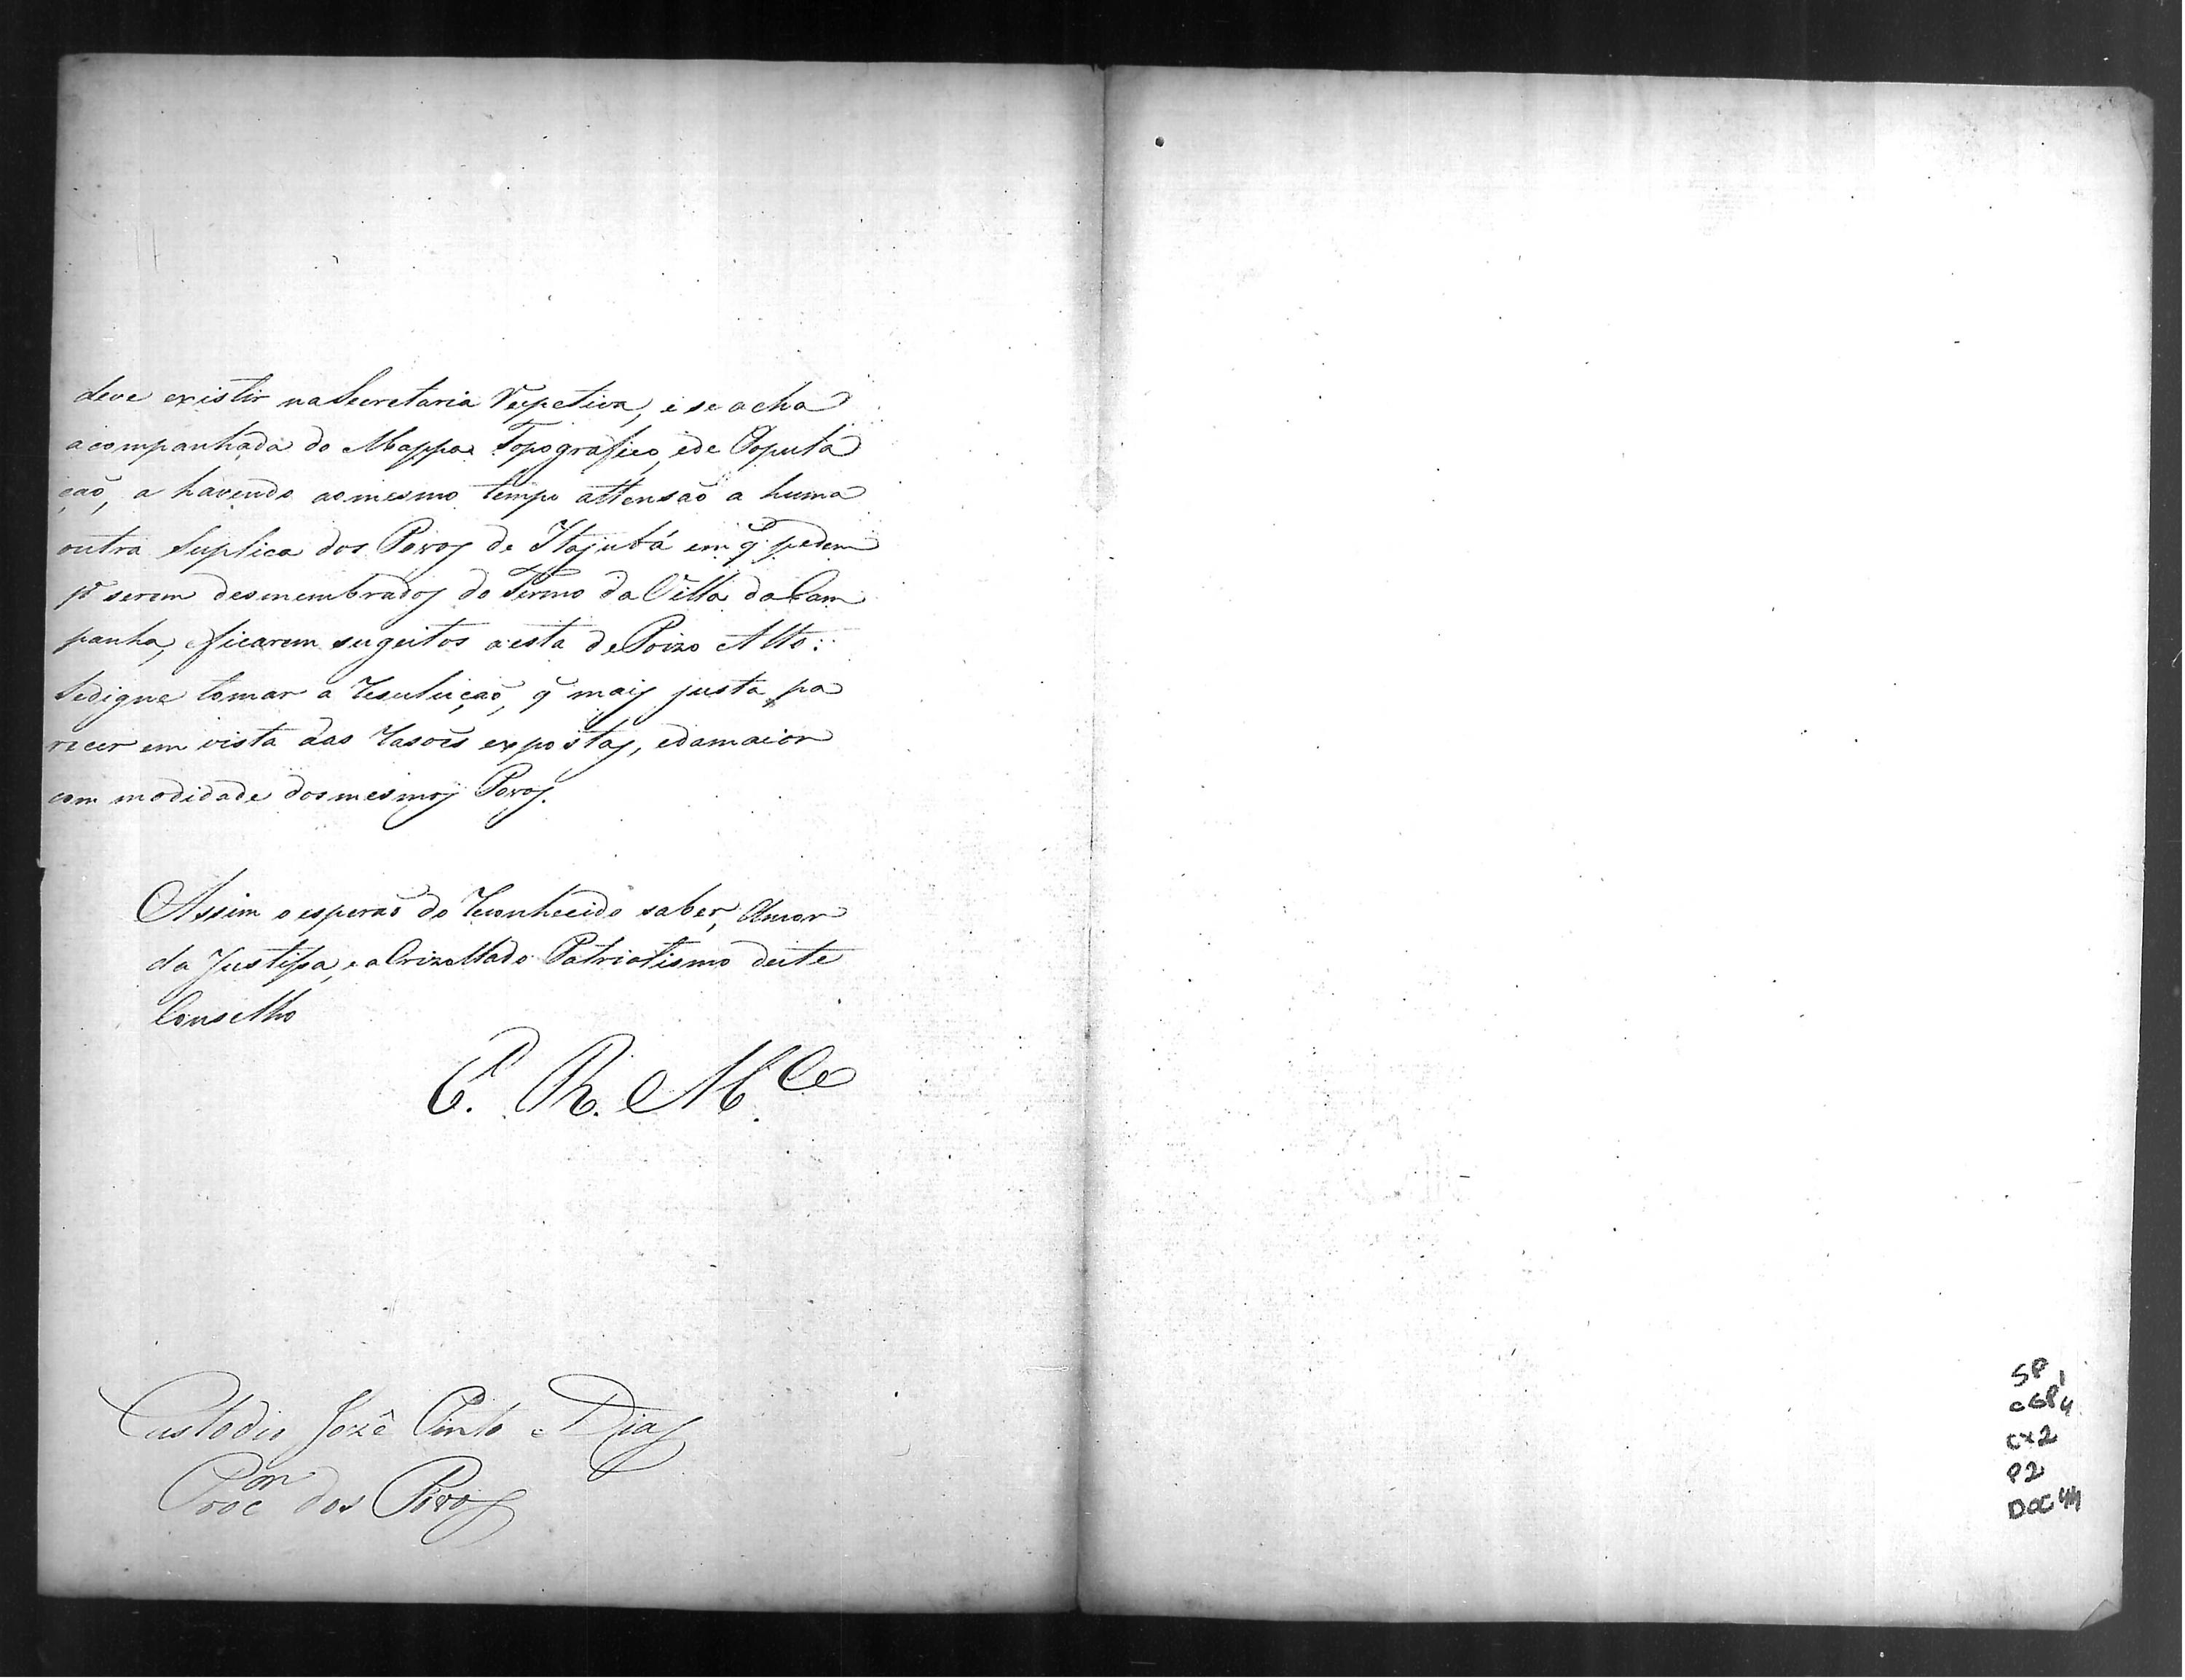 deve existir na Secretaria Respectiva, e se acha
acompanhada do Mappa Topografico, e de Popula
ção, a havendo ao mesmo tempo attensão a huma
outra Suplica dos Povos de Itajubá em q̃ pedem
pª serem desmembrados do Termo da Villa da Cam
panha, e ficarem sugeitos a esta de Poizo Alto:
Se digne tomar a Resulução, q̃ mais justa pa
recer em vista das Rasoẽs expostas, e da maior
commodidade dos mesmos Povos.
Assim o esperaõ do Reconhecido saber, Amor
da Justissa, e a Crizollado Patriotismo deste
Conselho
E. R. M.ce
Custodio Jozê Pinto Dias
Procor dos Povos
SP 1
CGP 4
CX 2
P 2
DOC 44